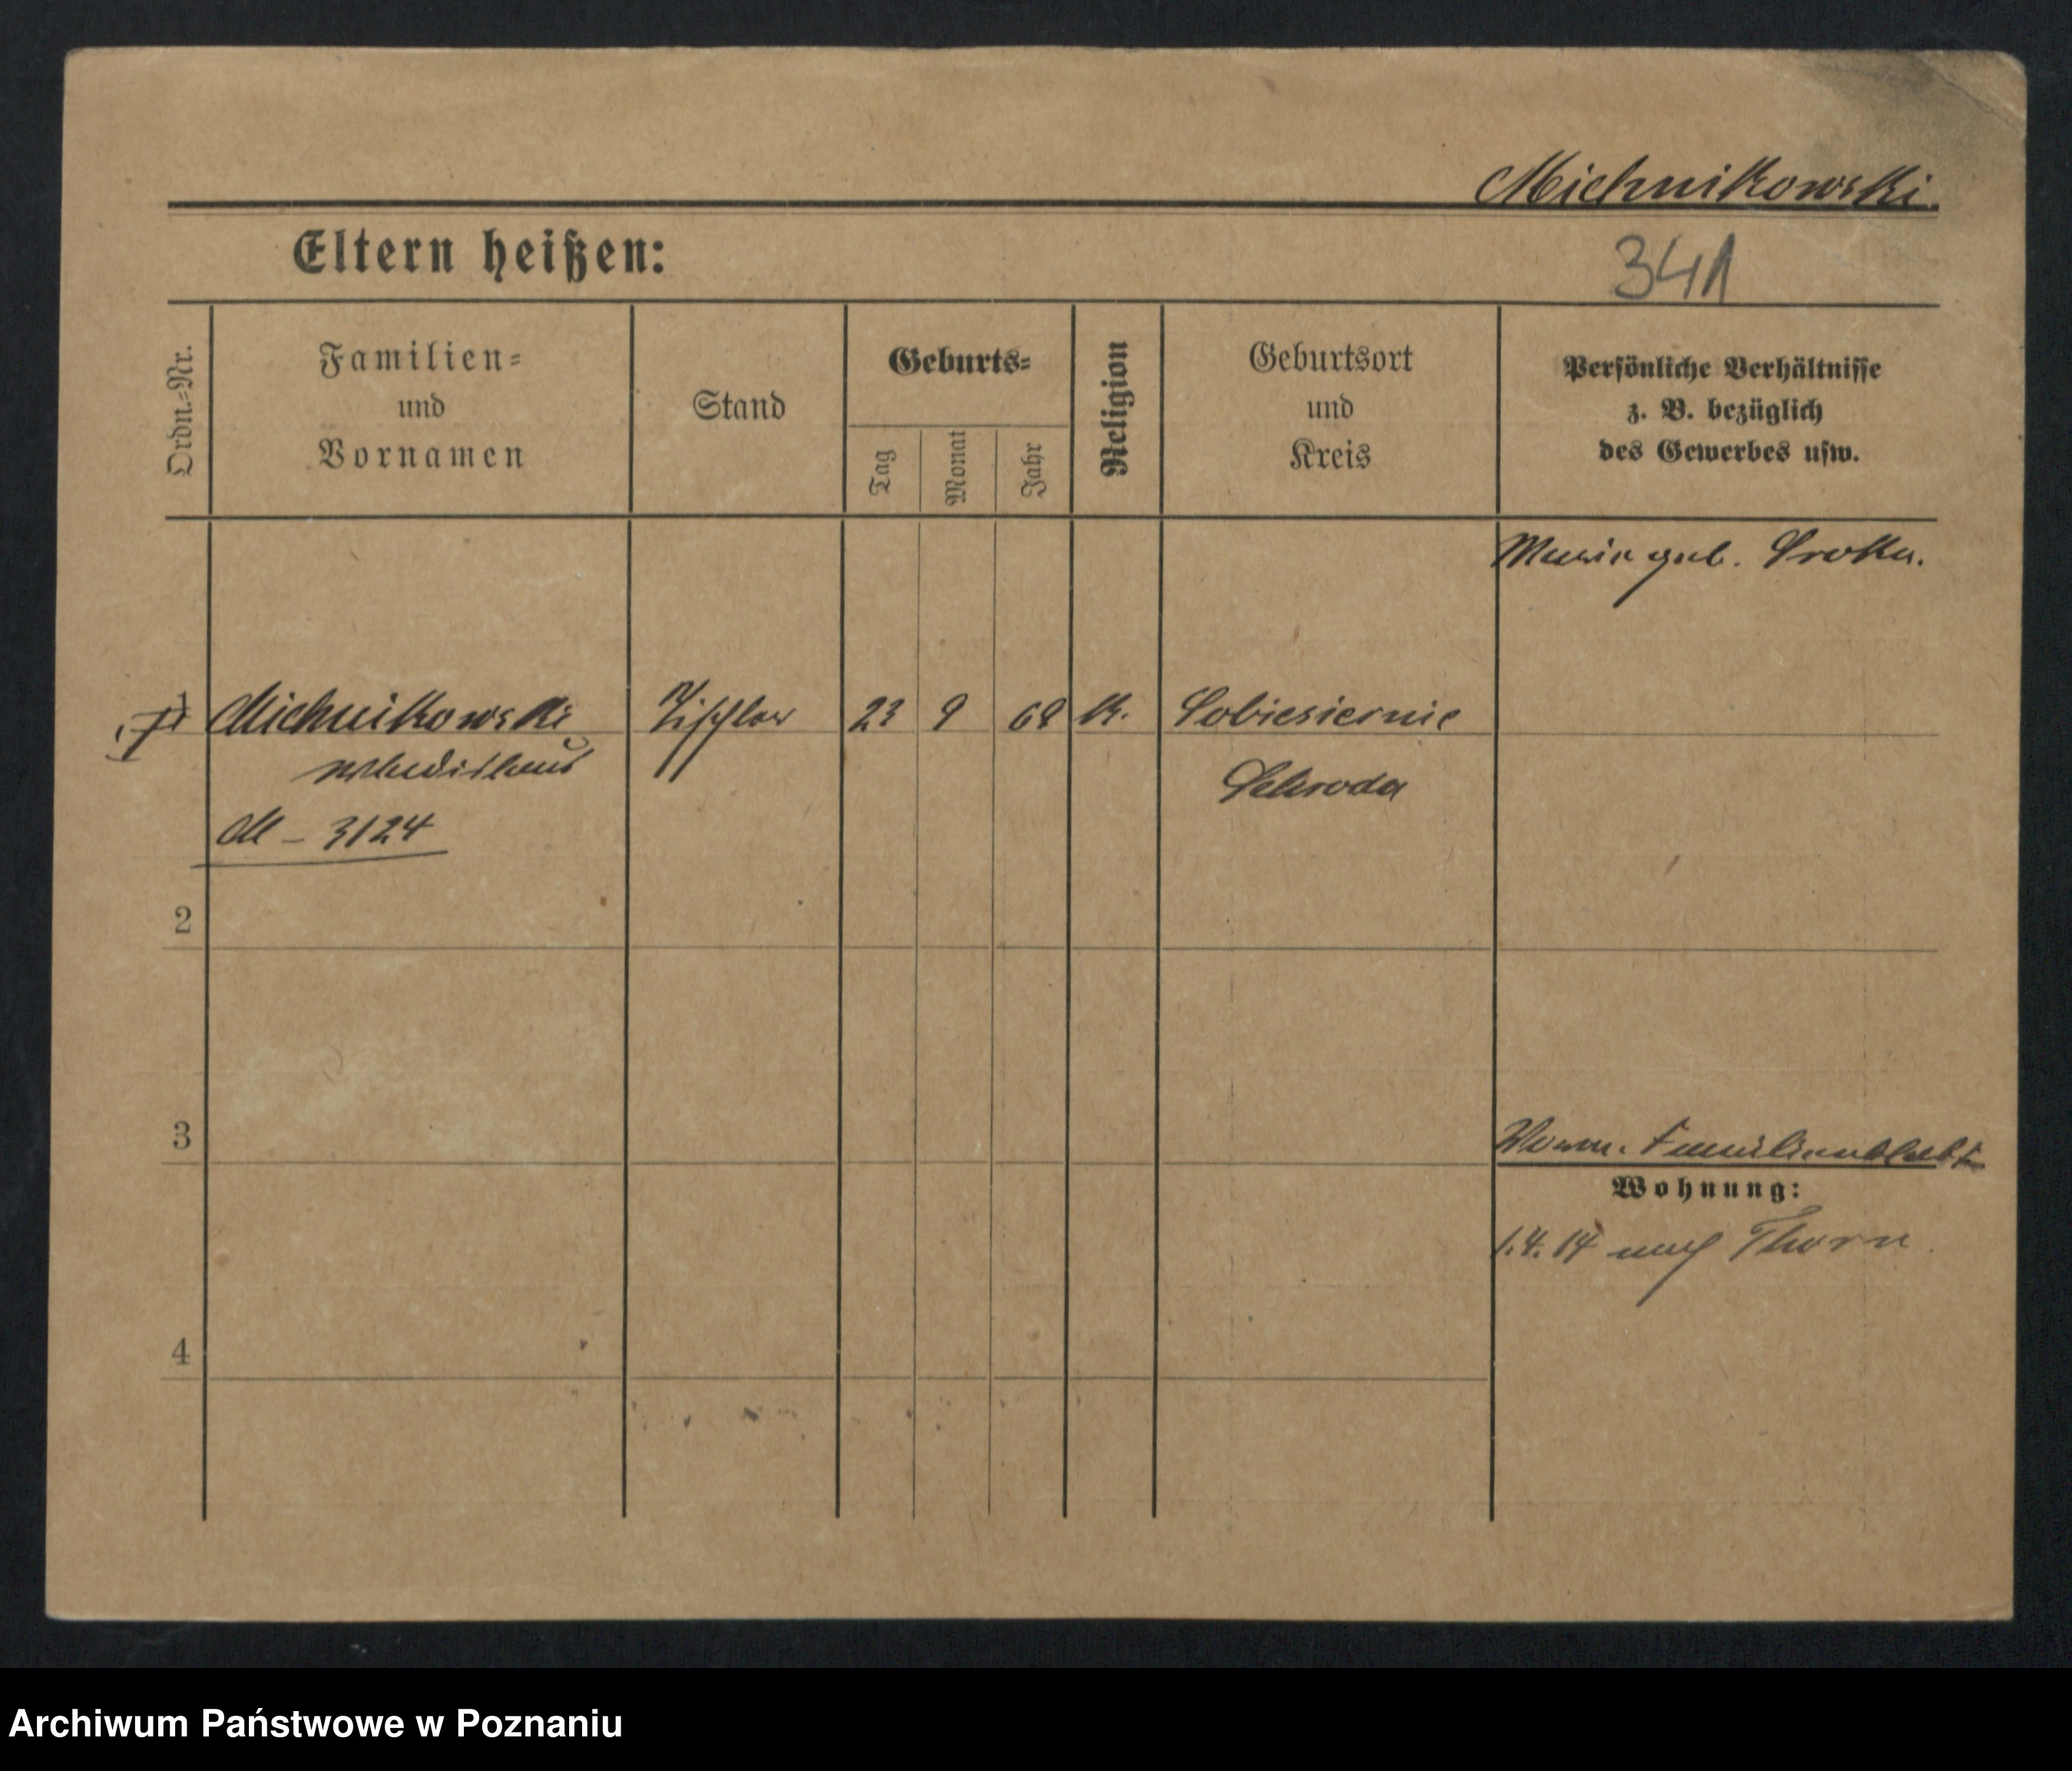 Michnikowski.
Eltern heißen:
341
Ordn.=Nr.
Familien=
und
Vornamen
Stand
Geburts=
Tag
Monat
Jahr
Religion
Geburtsort
und
Kreis
Persönliche Verhältnisse
z. B. bezüglich
des Gewerbes usw.
Maria geb. Sroka.
1 Michnikowski Tischler 23 9 68 K. Sobiesiernie
Wladislaus Schroda
M – 3124
2
3
Familienblatt
Wohnung:
1.4.14 nach Thorn
4
Archiwum Państwowe w Poznaniu